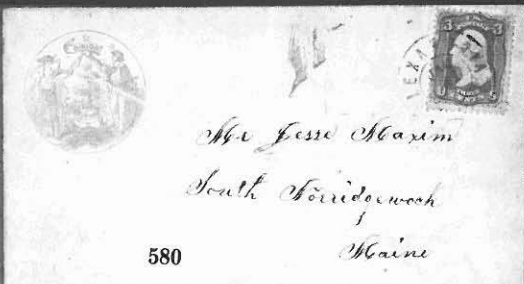 3 3
U S
Mr Jesse Maxim
South Norridgewock
Maine
580